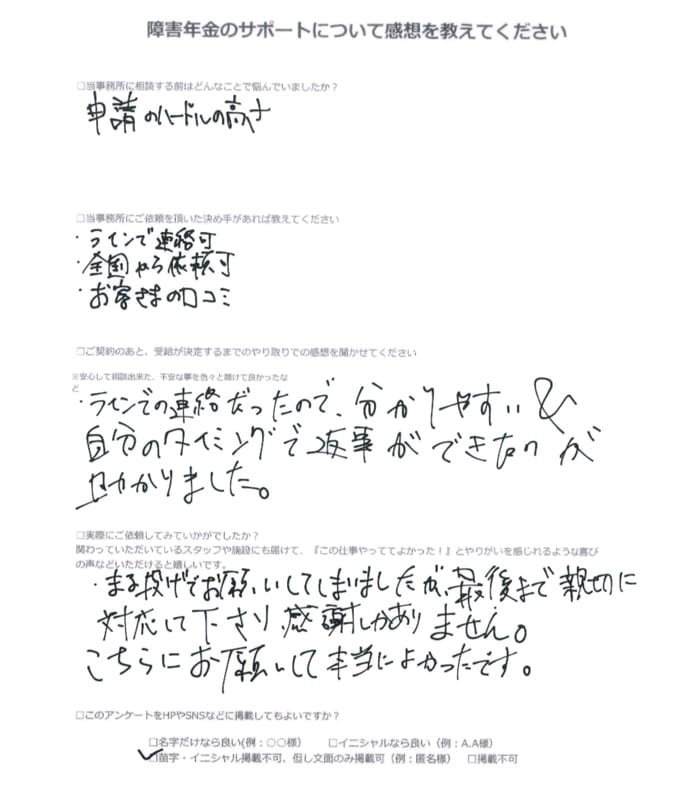 障害年金のサポートについて感想を教えてください
□当事務所に相談する前はどんなことで悩んでいましたか？
申請のハードルの高さ
□当事務所にご依頼を頂いた決め手があれば教えてください
・ラインで連絡可
・全国から依頼可
・お客さまの口コミ
□ご契約のあと、受給が決定するまでのやり取りでの感想を聞かせてください
※安心して相談出来た、不安な事を色々と聞けて良かったな
ど
・ラインでの連絡だったので、分かりやすい&
自分のタイミングで返事ができたのが
助かりました。
□実際にご依頼してみていかがでしたか？
関わっていただいているスタッフや施設にも届けて、『この仕事やっててよかった！』とやりがいを感じれるような喜び
の声などいただけると嬉しいです。
・まる投げでお願いしてしまいましたが、最後まで親切に
対応して下さり、感謝しかありません。
こちらにお願いして本当によかったです。
□このアンケートをHPやSNSなどに掲載してもよいですか？
□名字だけなら良い(例：○○様） □イニシャルなら良い（例：A.A様）
✓□苗字・イニシャル掲載不可、但し文面のみ掲載可（例：匿名様） □掲載不可